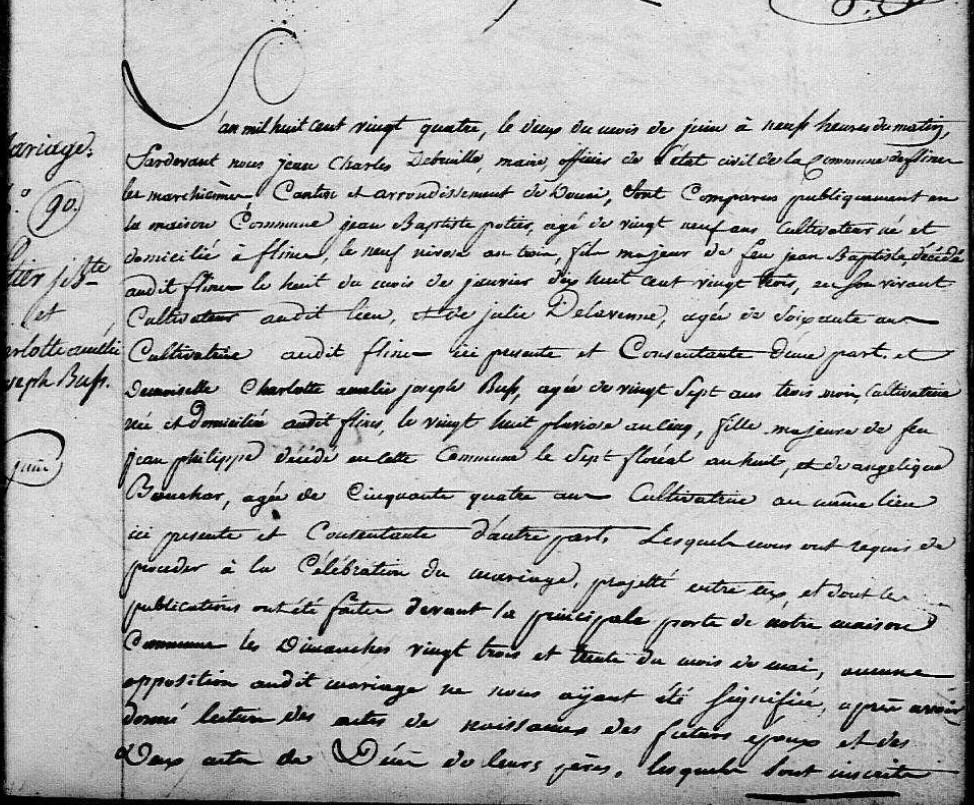 ariage.
90.
tier j Bte
et
arlotte amélie
oseph Buss.
juin
L'an mil huit cent vingt quatre, le deux du mois de juin à neuf heures du matin,
Pardevant nous jean Charles maire, officier de l'état civil de la Commune de flines
les marchiennes, Canton et arrondissement de Douai, sont Comparus publiquement en
la maison Commune jean Baptiste potier, agé de vingt neuf ans Cultivateur né et
domicilié à flines, le neuf nivose an trois, fils majeur de feu jean Baptiste, décédé
audit flines le huit du mois de janvier dix huit cent vingt trois, en son vivant
Cultivateur audit lieu, et de julie Delavenne, agée de soixante ans
Cultivatrice audit flines ici presente et Consentante d'une part. et
demoiselle Charlotte amelie joseph Buss, agée de vingt sept ans trois mois, Cultivatrice
née et domiciliée audit flines, le vingt huit pluviose an cinq, fille majeure de feu
jean philippe décédé en cette Commune le sept floréal an huit, et de angelique
Bouchar, agée de Cinquante quatre ans Cultivatrice au même lieu
ici presente et Consentante d'autre part. Lesquels nous ont requis de
proceder à la Célébration du mariage, projetté entre eux, et dont les
publications ont été faites devant la principale porte de notre maison
Commune les Dimanches vingt trois et trente du mois de mai, aucune
opposition audit mariage ne nous ayant été signifiée, après avoir
donné lecture des actes de naissances des futurs époux et des
Deux actes de Décès de leurs pères, lesquels sont inscrits